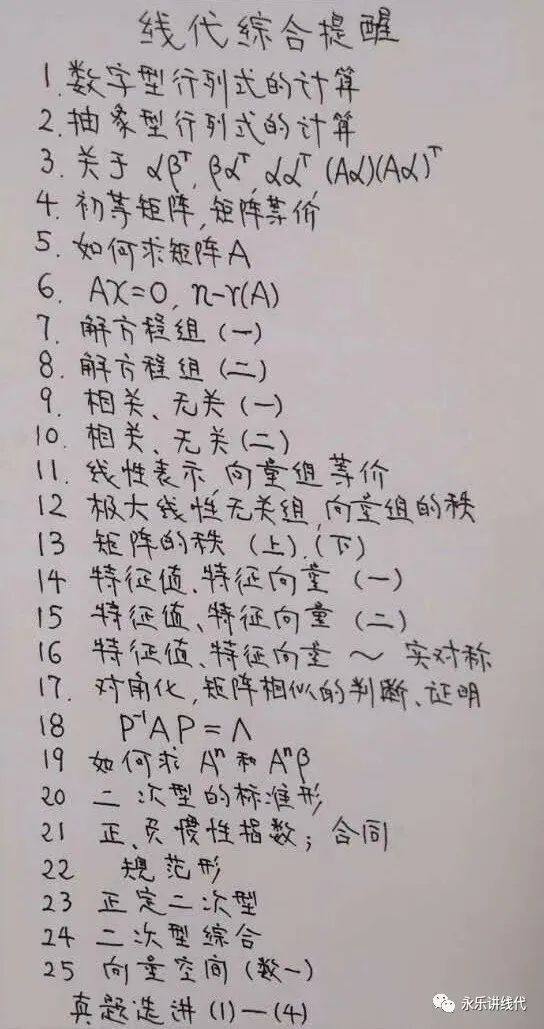 线代综合提醒
1.数字型行列式的计算
2.抽象型行列式的计算
3.关于 αβᵀ, βαᵀ, ααᵀ, (Aα)(Aα)ᵀ
4.初等矩阵,矩阵等价
5.如何求矩阵A
6. Ax=0, n-r(A)
7.解方程组(一)
8.解方程组(二)
9.相关、无关(一)
10.相关、无关(二)
11.线性表示,向量组等价
12 极大线性无关组,向量组的秩
13 矩阵的秩(上).(下)
14 特征值、特征向量(一)
15 特征值、特征向量(二)
16 特征值、特征向量~实对称
17.对角化,矩阵相似的判断、证明
18 P⁻¹AP=Λ
19 如何求 Aⁿ和Aⁿβ
20 二次型的标准形
21 正、负惯性指数;合同
22 规范形
23 正定二次型
24 二次型综合
25 向量空间(数一)
真题选讲(1)—(4)
永乐讲线代